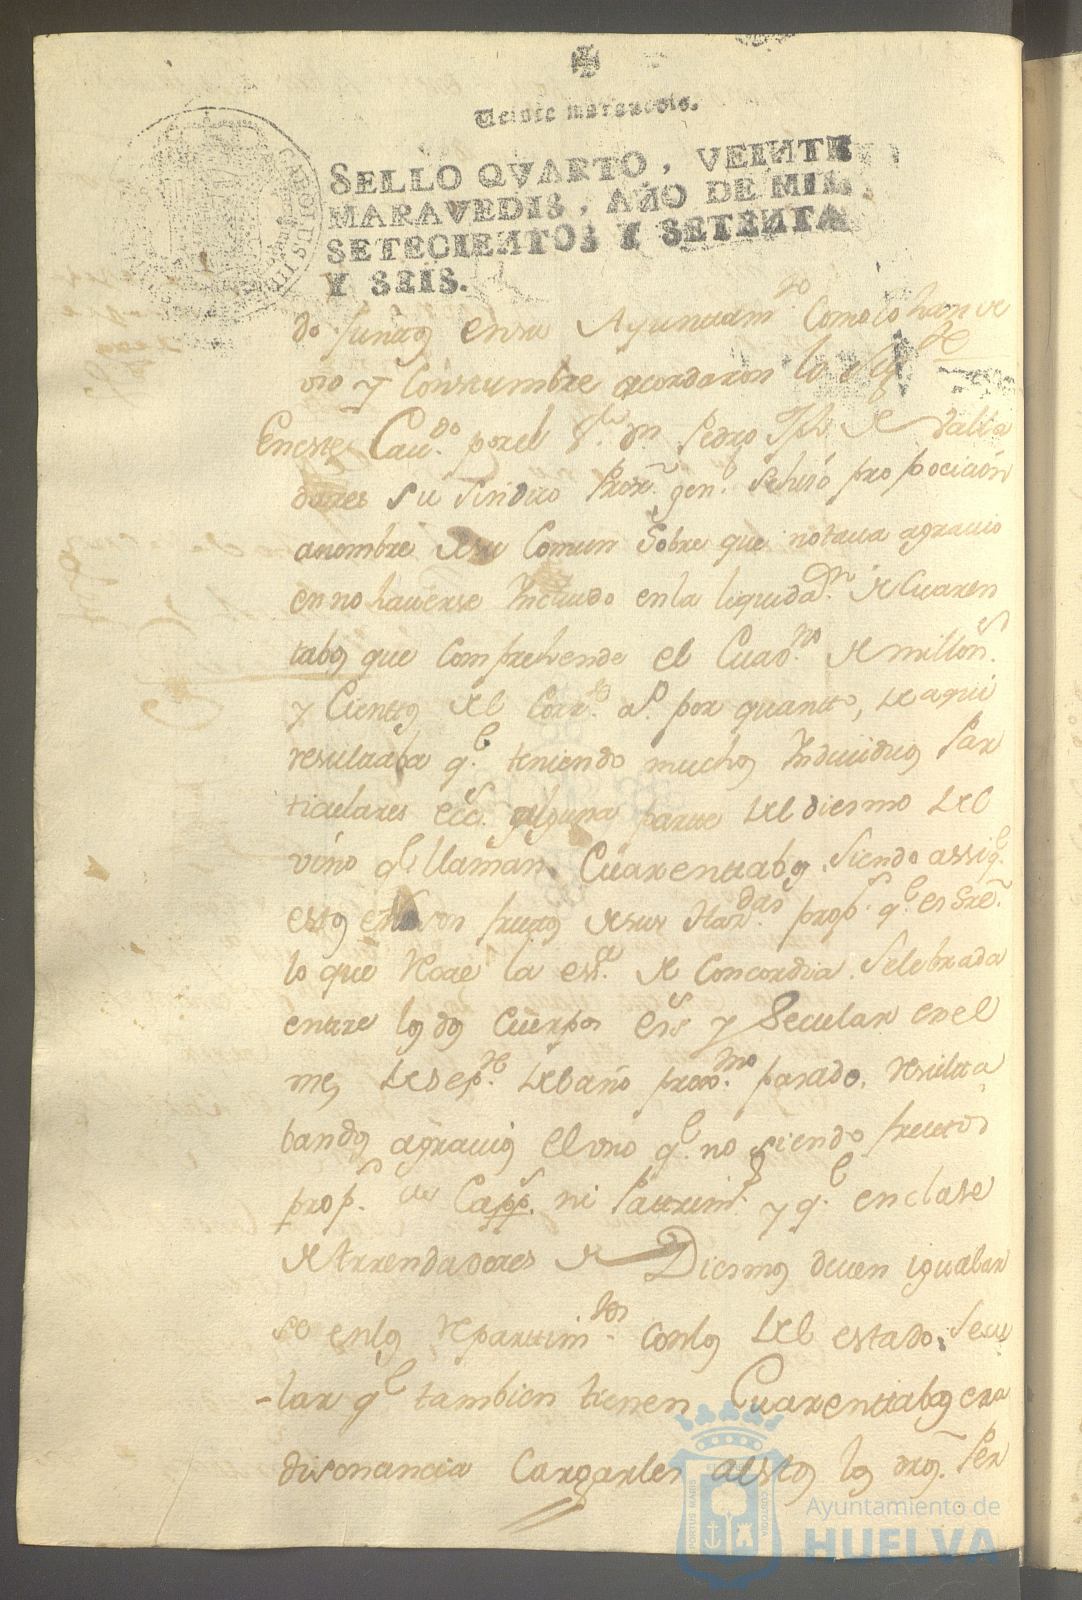 Veinte maravedis.
SELLO QVARTO, VEINTE
MARAVEDIS, AÑO DE MIL
SETECIENTOS Y SETENTA
Y SEIS.
CAROLUS III
do juntos en su Ayuntam.to como lo han de
uso y Constumbre acordaron lo sig.te
En este Cav.do por el S.r dn. Pedro de Valla
dares su sindico Pror. gen.l se hisó proposición
a nombre de su Comun sobre que notava agravio
en no haverse Incluido en la liquidaz.n de Cuaren
tabos que comprehende el Cuad.no de millon.s
y Cientos del Corr.te a.º por quanto, de aqui
resultaba q.e teniendo muchos Individuos Par
ticulares ecc.s alguna parte del diesmo del
vino q.e llaman Cuarentabos, siendo assi q.e
estos no son frutos de sus Haz.das prop.s q.e es sre.
lo que recae la es.ra de Concordia selebrada
entre los dos Cuerpos ecc.s y Secular en el
mes de Sep.re del año prox.mo pasado, resulta
ban dos agravios el uno q.e no siendo frutos
prop.s de Capp.s ni Patrim.s y q.e en clase
de Arrendadores de Diesmos deven igualar
se en los repartim.tos con los del estado Secu
lar q.e tambien tienen Cuarentabos era
disonancia Cargarles a estos los dros. Per
PORTUS MARIS CUSTODIA
Ayuntamiento de
HUELVA